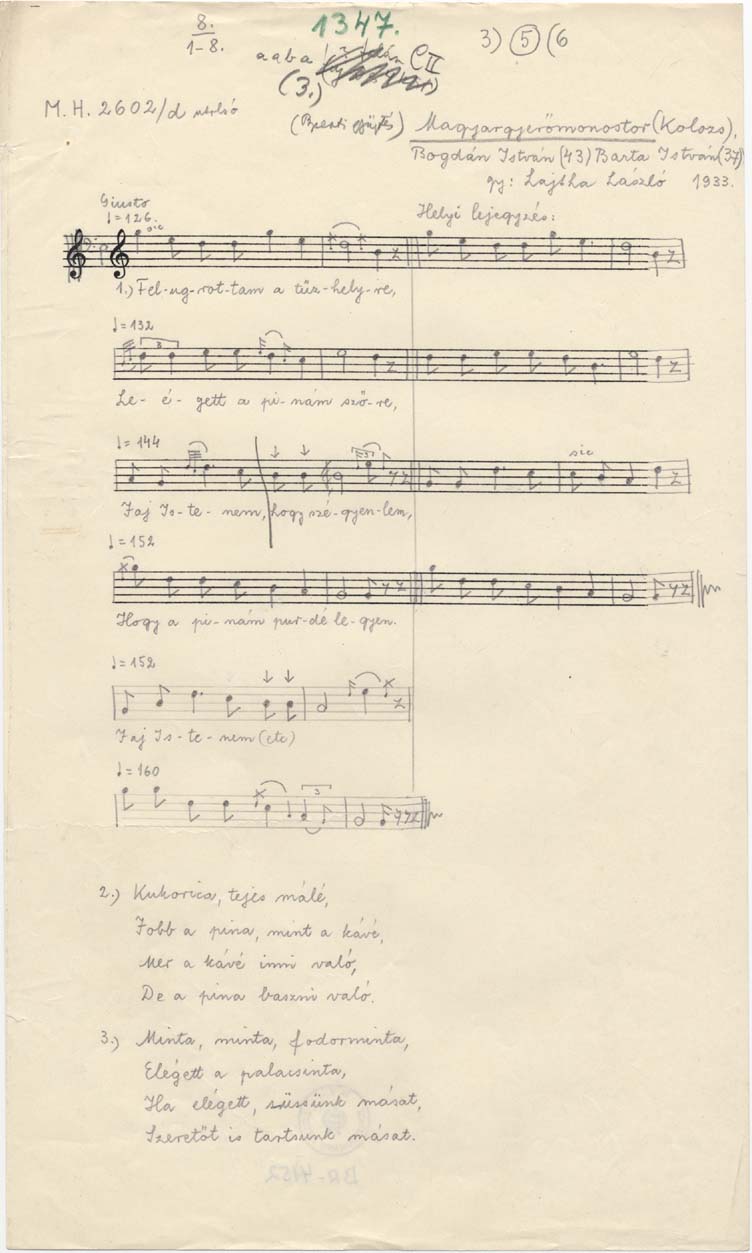 8.
1-8.
1347.
3) 5 (6
a a b a
CII
(3.)
M. H. 2602/d utolsó
(Brenti gyűjtés) Magyargyerőmonostor (Kolozs),
Bogdán István (43) Barta István (37)
gy: Lajtha László 1933.
Giusto
♩=126.
sic
Helyi lejegyzés:
1.) Fel-ug-rot-tam a tűz-hely-re,
♩=132
3
Le-é-gett a pi-nám ször-re,
♩=144
3
sic
Haj Is-te-nem, hogy szé-gyen-lem,
♩=152
Hogy a pi-nám pur-dé le-gyen.
♩=152
Haj Is-te-nem (etc)
♩=160
3
2.) Kukorica, tejes málé,
Jobb a pina, mint a kávé,
Mer a kávé inni való,
De a pina baszni való.
3.) Minta, minta, fodorminta,
Elégett a palacsinta,
Ha elégett, süssünk mását,
Szeretőt is tartsunk mását.
BR-4152